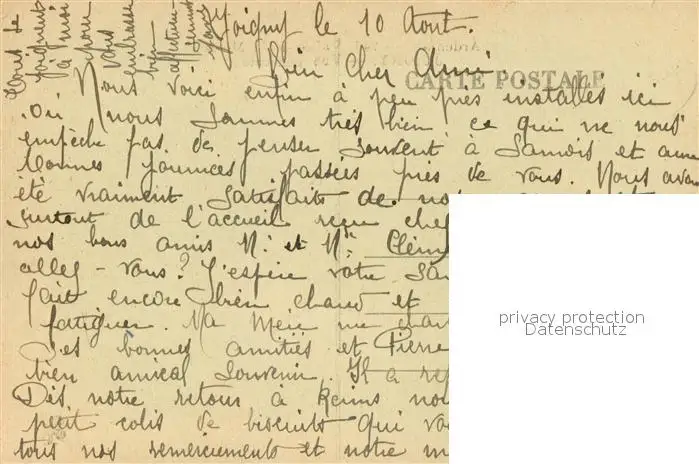 Joigny le 10 Août.
Mon cher Ami.
CARTE POSTALE
Nous voici enfin à peu près installés ici
où nous sommes très bien, ce qui ne nous
empêche pas de penser souvent à Samois et aux
bonnes journées passées près de vous. Nous avon
été vraiment satisfaits de no
surtout de l'accueil reçu chez
nos bons amis M. et Mme Clém
allez-vous? J'espère votre san
fait encore bien chaud et
fatiguer. Ma Mère me char
ses bonnes amitiés et Pierre
bien amical souvenir. Il a re
Dès notre retour à Reims nou
petit colis de biscuits qui vo
tous nos remerciements et notre m
Tous se
joignent
à moi
pour
vous
embrasser
bien
affectueu-
sement
privacy protection
Datenschutz